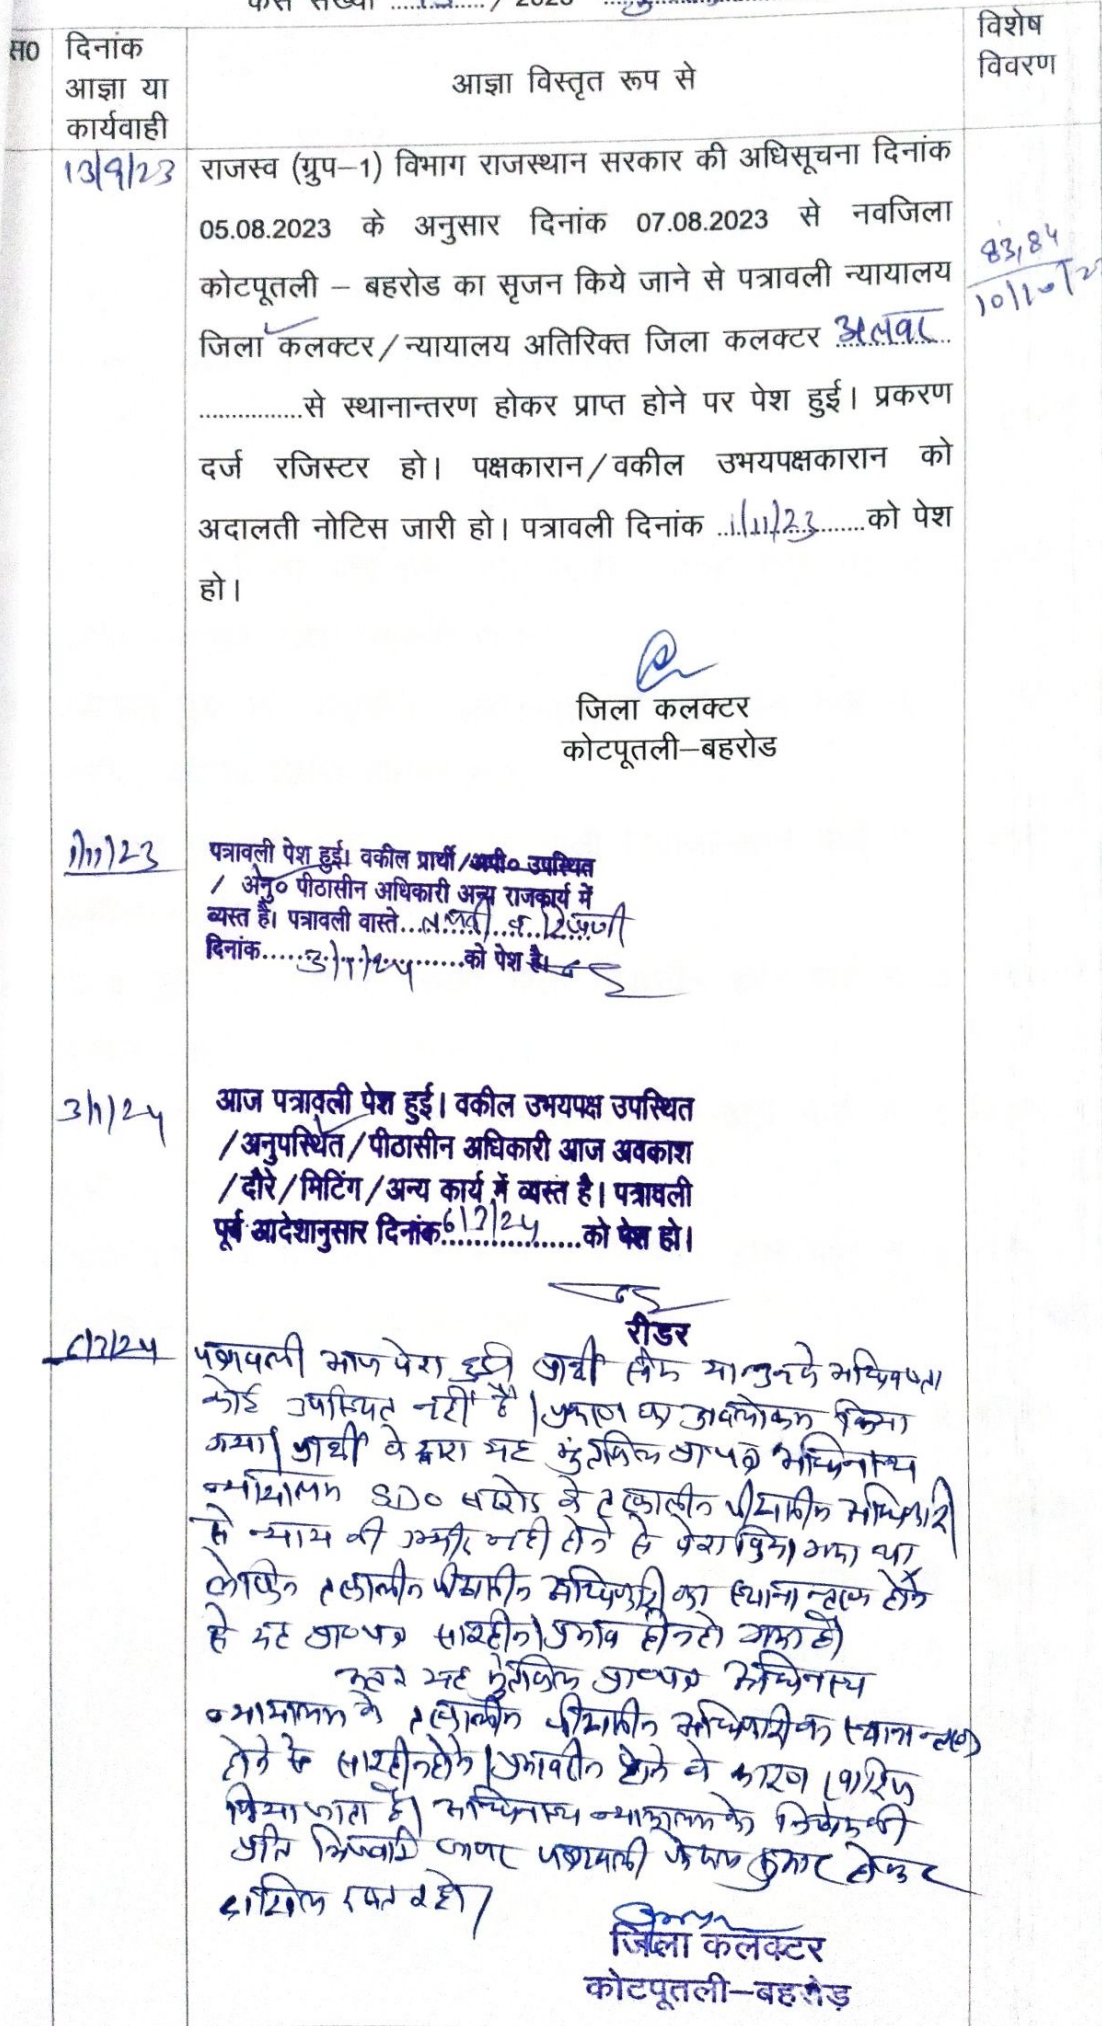 केस संख्या / 2023
स0
दिनांक
आज्ञा या
कार्यवाही
आज्ञा विस्तृत रूप से
विशेष
विवरण
13/9/23
राजस्व (ग्रुप–1) विभाग राजस्थान सरकार की अधिसूचना दिनांक
05.08.2023 के अनुसार दिनांक 07.08.2023 से नवजिला
कोटपूतली – बहरोड का सृजन किये जाने से पत्रावली न्यायालय
जिला कलक्टर/न्यायालय अतिरिक्त जिला कलक्टर अलवर
................से स्थानान्तरण होकर प्राप्त होने पर पेश हुई। प्रकरण
दर्ज रजिस्टर हो। पक्षकारान/वकील उभयपक्षकारान को
अदालती नोटिस जारी हो। पत्रावली दिनांक 1/11/23 को पेश
हो।
83,84
जिला कलक्टर
कोटपूतली–बहरोड
1/11/23
पत्रावली पेश हुई। वकील प्रार्थी/अपी० उपस्थित
/ अनु० पीठासीन अधिकारी अन्य राजकार्य में
व्यस्त है। पत्रावली वास्ते
दिनांक 3/1/24 को पेश है।
3/1/24
आज पत्रावली पेश हुई। वकील उभयपक्ष उपस्थित
/अनुपस्थित/पीठासीन अधिकारी आज अवकाश
/दौरे/मिटिंग/अन्य कार्य में व्यस्त है। पत्रावली
पूर्व आदेशानुसार दिनांक को पेश हो।
रीडर
पत्रावली आज पेश हुई प्रार्थी अधिवक्ता
कोई उपस्थित नहीं है। प्रकरण का अवलोकन किया
गया। प्रार्थी के द्वारा यह मुंतकिल प्रा०पत्र अधिनस्थ
न्यायालय SDO बहरोड के तत्कालीन पीठासीन अधिकारी
से न्याय की उम्मीद नहीं होने से पेश किया गया था
लेकिन तत्कालीन पीठासीन अधिकारी का स्थानान्तरण होने
से यह प्रा०पत्र सारहीन/प्रभाव हीन हो गया है।
अतः यह मुंतकिल प्रा०पत्र अधिनस्थ
न्यायालय के तत्कालीन पीठासीन अधिकारी का स्थानान्तरण
होने से सारहीन होने/प्रभावहीन होने के कारण खारिज
किया जाता है। अधिनस्थ न्यायालय के निर्णय की
प्रति भिजवाई जाए पत्रावली फैसल शुमार होकर
दाखिल दफ्तर हो।
जिला कलक्टर
कोटपूतली–बहरोड़